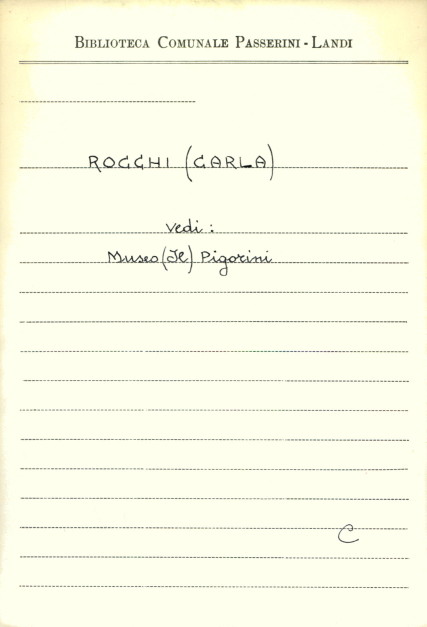 BIBLIOTECA COMUNALE PASSERINI - LANDI
ROCCHI (CARLA)
vedi :
Museo (Il) Pigorini
C